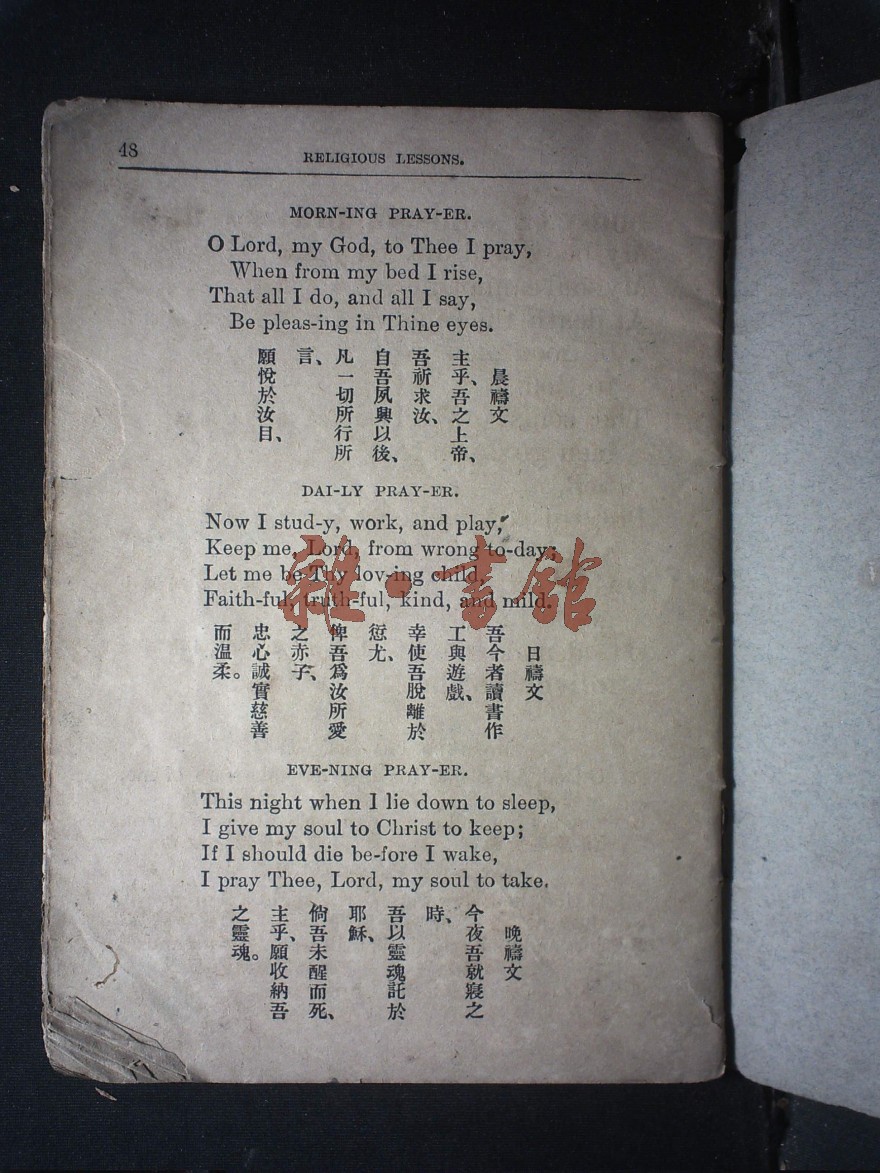 48
RELIGIOUS LESSONS.
MORN-ING PRAY-ER.
O Lord, my God, to Thee I pray,
When from my bed I rise,
That all I do, and all I say,
Be pleas-ing in Thine eyes.
晨禱文
主乎、吾之上帝、
吾祈求汝、
自吾夙興以後、
凡一切所行所
言、
願悅於汝目、
DAI-LY PRAY-ER.
Now I stud-y, work, and play,
Keep me, Lord, from wrong to-day;
Let me be Thy lov-ing child,
Faith-ful, truth-ful, kind, and mild.
雜·書館
日禱文
吾今者讀書作
工與遊戲、
幸使吾脫離於
愆尤、
俾吾爲汝所愛
之赤子、
忠心誠實慈善
而溫柔。
EVE-NING PRAY-ER.
This night when I lie down to sleep,
I give my soul to Christ to keep;
If I should die be-fore I wake,
I pray Thee, Lord, my soul to take.
晚禱文
今夜吾就寢之
時、
吾以靈魂託於
耶穌、
倘吾未醒而死、
主乎、願收納吾
之靈魂。